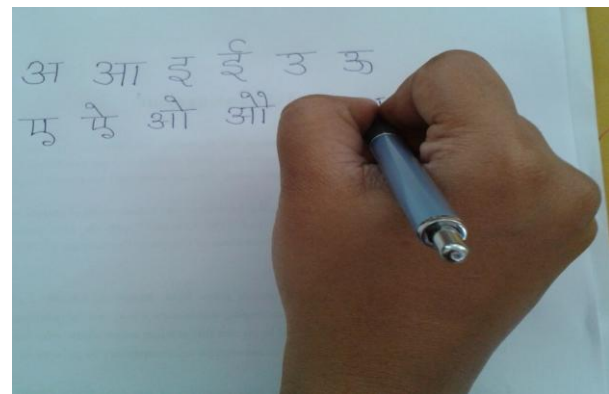 अ आ इ ई उ ऊ
ए ऐ ओ औ